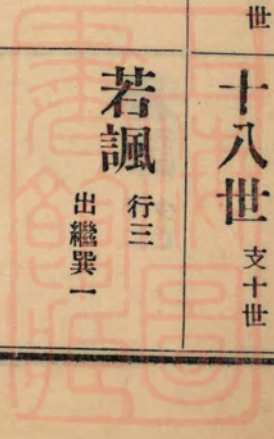 世
十八世 支十世
若諷 行三
出繼巽一